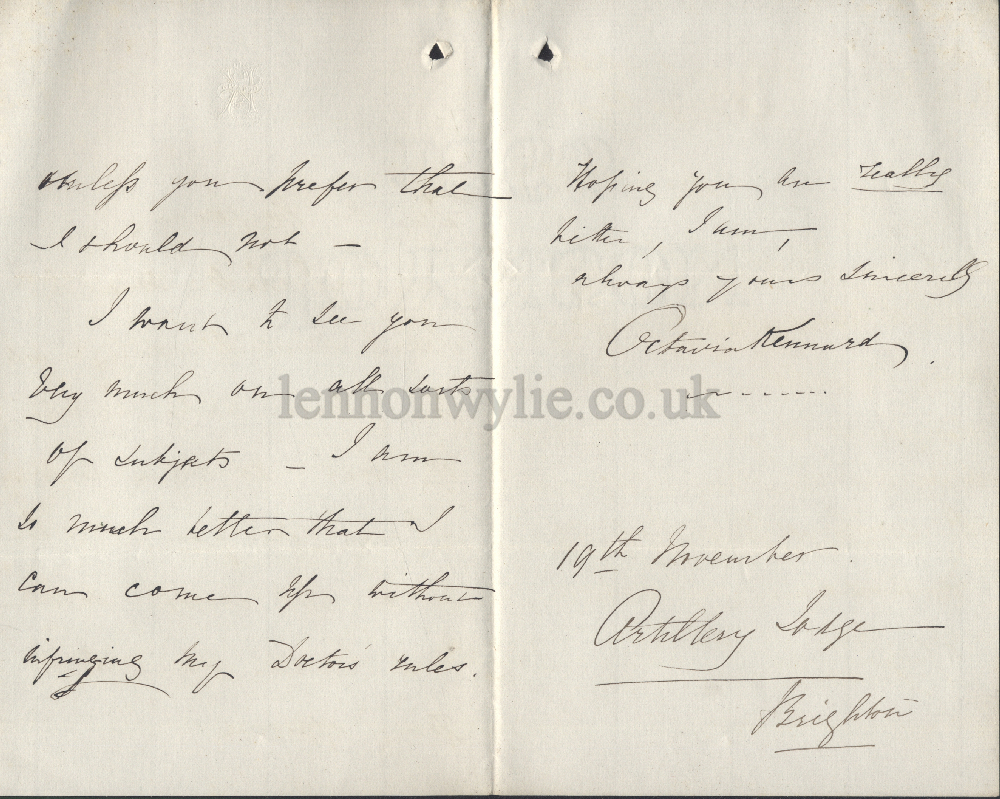 unless you prefer that
I should not —
I want to see you
very much on all sorts
of subjects — I am
so much better that I
can come up without
infringing my Doctor's rules.
Hoping you are really
better, I am,
always yours sincerely
Octavia Kennard.
19th November.
Artillery Lodge
Brighton
lennonwylie.co.uk